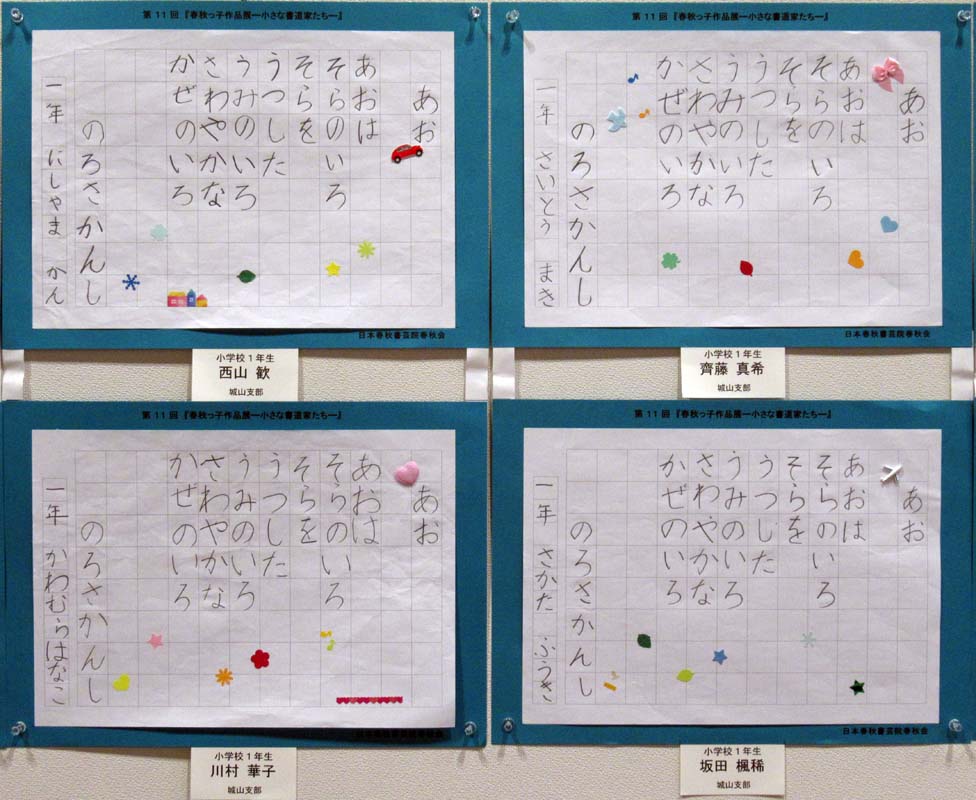 第11回『春秋っ子作品展ー小さな書道家たちー』
あお
あおは
そらのいろ
そらを
うつした
うみのいろ
さわやかな
かぜのいろ
のろさかんし
一年 にしやま かん
日本春秋書芸院春秋会
小学校1年生
西山 歓
城山支部
第11回『春秋っ子作品展ー小さな書道家たちー』
あお
あおは
そらのいろ
そらを
うつした
うみのいろ
さわやかな
かぜのいろ
のろさかんし
一年 さいとう まき
日本春秋書芸院春秋会
小学校1年生
齊藤 真希
城山支部
第11回『春秋っ子作品展ー小さな書道家たちー』
あお
あおは
そらのいろ
そらを
うつした
うみのいろ
さわやかな
かぜのいろ
のろさかんし
一年 かわむらはなこ
日本春秋書芸院春秋会
小学校1年生
川村 華子
城山支部
第11回『春秋っ子作品展ー小さな書道家たちー』
あお
あおは
そらのいろ
そらを
うつした
うみのいろ
さわやかな
かぜのいろ
のろさかんし
一年 さかた ふうき
日本春秋書芸院春秋会
小学校1年生
坂田 楓稀
城山支部